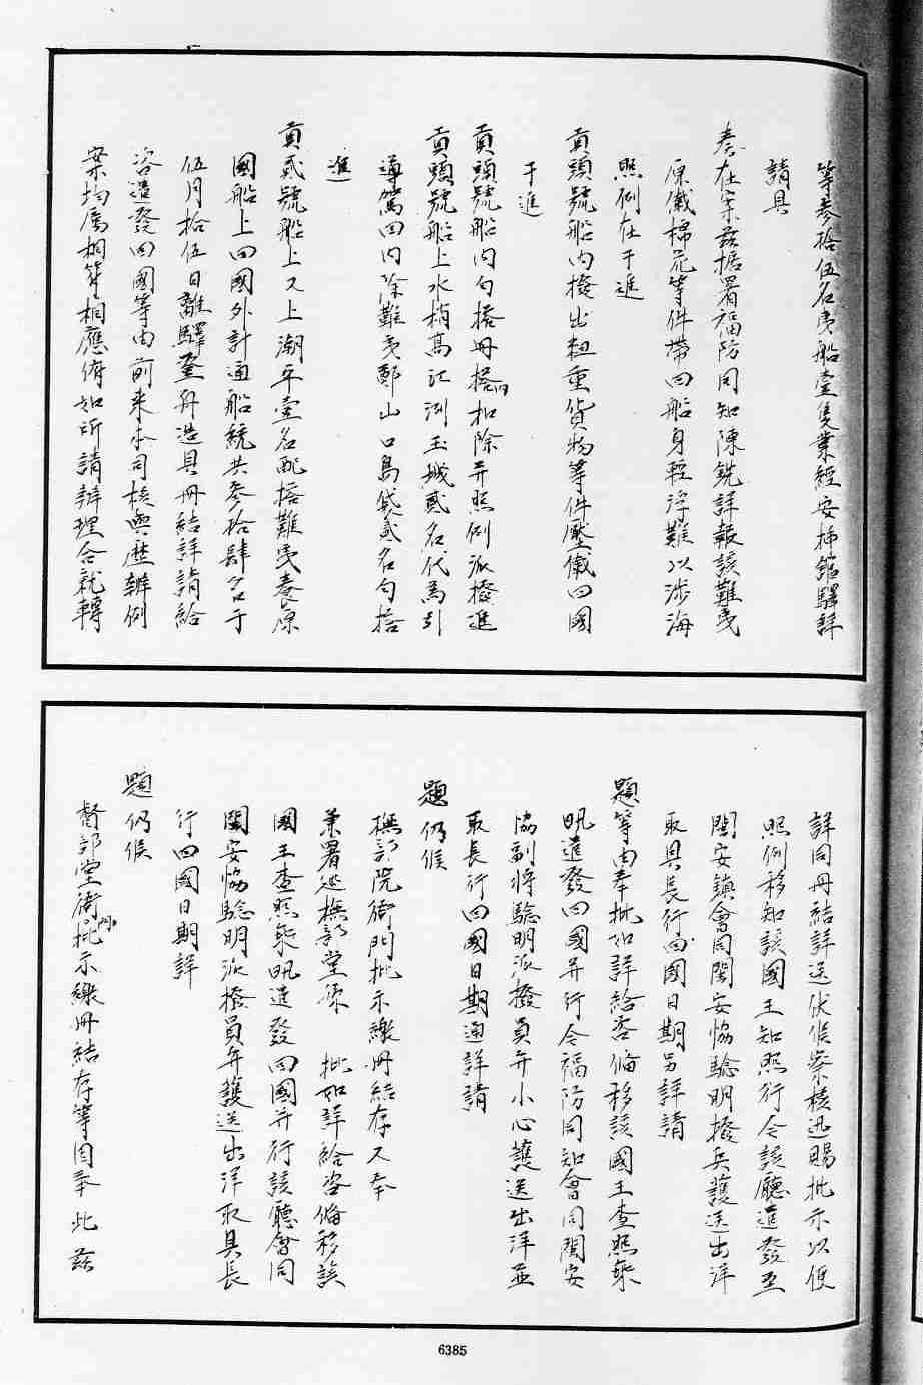 等叁拾伍名夷船壹隻業經安揷館驛詳
請具
奏在案茲據署福防同知陳銑詳報該難夷
原儎棉花等件帶回船身輕浮難以涉海
照例在于進
貢頭號船內撥出粗重貨物等件壓儎回國
于進
貢頭號船內勻搭冊檔內扣除并照例派撥進
貢頭號船上水梢高江洲玉城貳名代為引
導駕回內除難夷鄭山口島袋貳名勻搭
進
貢貳號船上又上潮平壹名配搭難夷養原
國船上回國外計通船統共叁拾肆名于
伍月拾伍日離驛登舟造具冊結詳請給
咨遣發回國等由前來本司核與歷辦例
案均屬相符相應俯如所請辦理合就轉
詳同冊結詳送伏候察核迅賜批示以便
照例移知該國王知照行令該廳遣發至
閩安鎮會同閩安協驗明撥兵護送出洋
取具長行回國日期另詳請
題等由奉批如詳給咨備移該國王查照藥
帆遣發回國并行令福防同知會同閩安
協副將驗明派撥員弁小心護送出洋並
取長行回國日期通詳請
題仍候
撫部院衙門批示繳冊結存又奉
兼署巡撫部堂 批如詳給咨備移該
國王查照 帆遣發回國并行該廳會同
閩安協驗明派撥員弁護送出洋取具長
行回國日期詳
題仍候
督部堂衙門批示繳冊結存等因奉此茲
6385